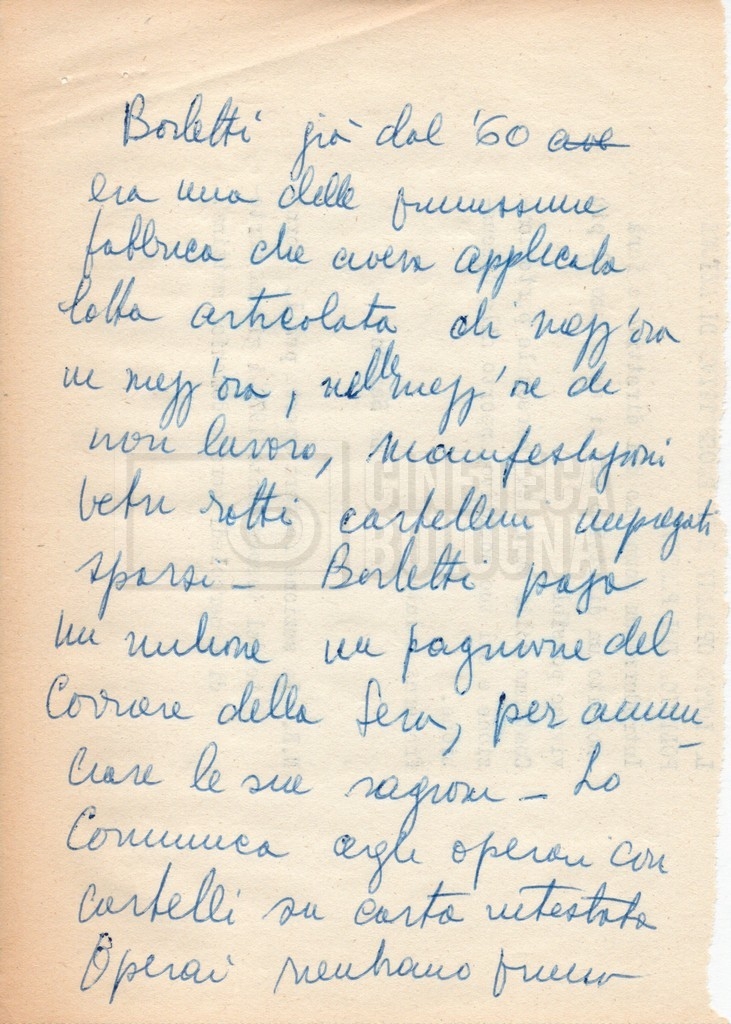 Borletti già dal '60 ave
era una delle primissime
fabbrica che aveva applicato
lotta articolata di mezz'ora
in mezz'ora, nelle mezz'ore di
non lavoro, manifestazioni
vetri rotti cartellini impiegati
sparsi - Borletti paga
un milione un paginone del
Corriere della Sera, per annun
ciare le sue ragioni - Lo
Comunica agli operai con
cartelli su carta intestata
Operai rientrano
CINETECA
BOLOGNA